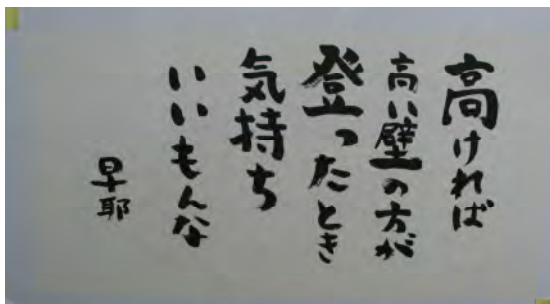 高ければ
高い壁の方が
登ったとき
気持ち
いいもんな
早耶